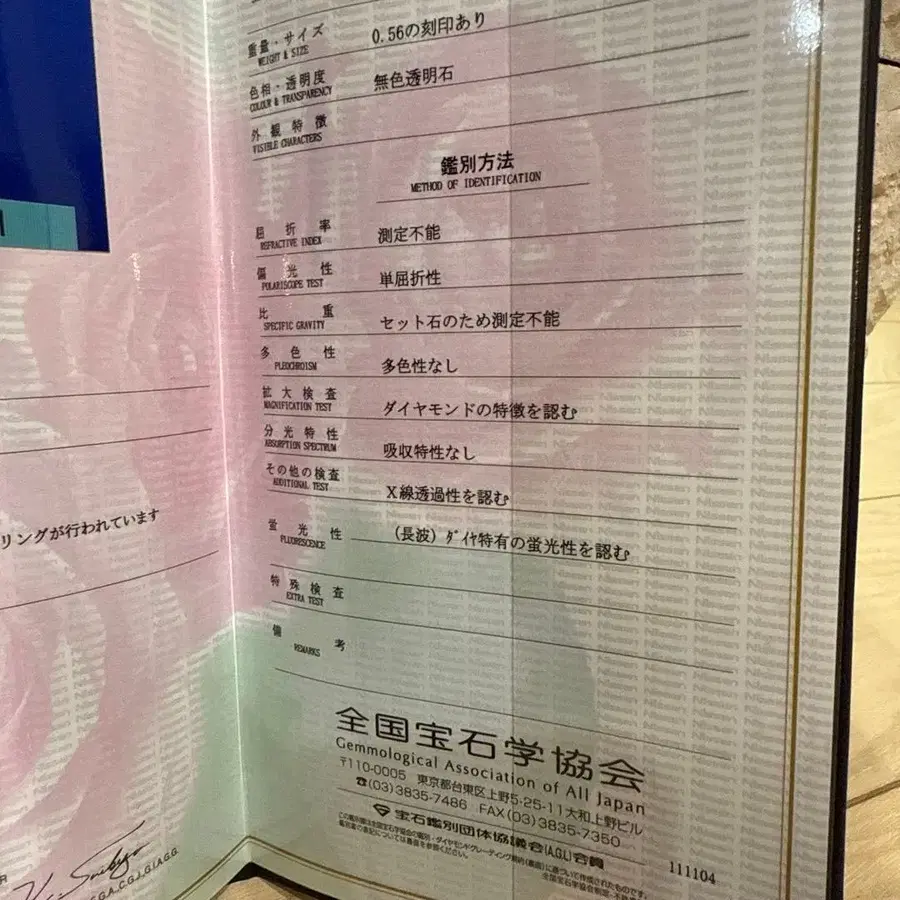 重量・サイズ 0.56の刻印あり
WEIGHT & SIZE
色相・透明度 無色透明石
COLOUR & TRANSPARENCY
外観特徴
VISIBLE CHARACTERS
鑑別方法
METHOD OF IDENTIFICATION
屈折率 測定不能
REFRACTIVE INDEX
偏光性 単屈折性
POLARISCOPE TEST
比重 セット石のため測定不能
SPECIFIC GRAVITY
多色性 多色性なし
PLEOCHROISM
拡大検査 ダイヤモンドの特徴を認む
MAGNIFICATION TEST
分光特性 吸収特性なし
ABSORPTION SPECTRUM
その他の検査 X線透過性を認む
ADDITIONAL TEST
蛍光性 (長波)ダイヤ特有の蛍光性を認む
FLUORESCENCE
特殊検査
EXTRA TEST
備考
REMARKS
リングが行われています
全国宝石学協会
Gemmological Association of All Japan
〒110-0005 東京都台東区上野5-25-11大和上野ビル
☎(03)3835-7486 FAX(03)3835-7350
宝石鑑別団体協議会(A.G.L)会員
111104